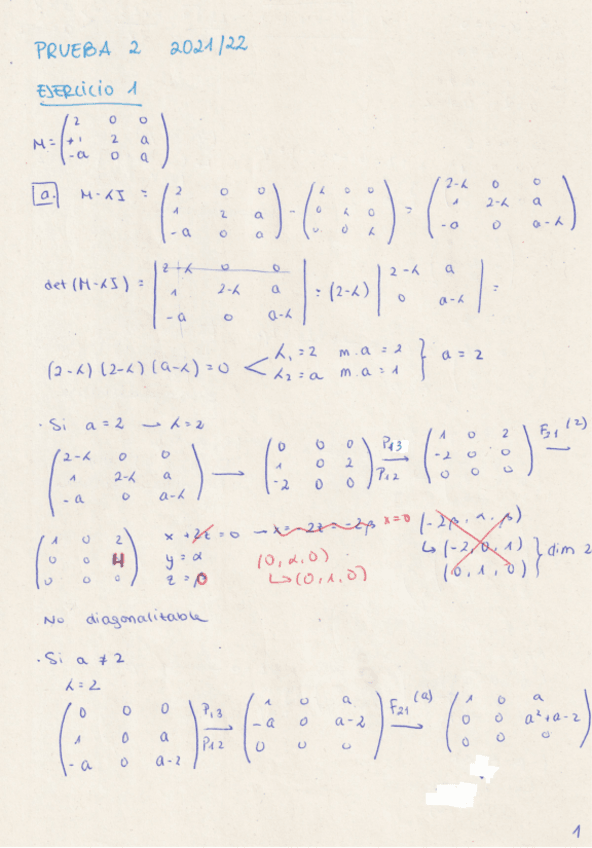 PRUEBA 2 2021/22
EJERCICIO 1
M = ( 2 0 0
+1 2 a
-a 0 a )
a. M-λI = ( 2 0 0 ; 1 2 a ; -a 0 a ) - ( λ 0 0 ; 0 λ 0 ; 0 0 λ ) = ( 2-λ 0 0 ; 1 2-λ a ; -a 0 a-λ )
det (M-λI) = | 2-λ 0 0 ; 1 2-λ a ; -a 0 a-λ | = (2-λ) | 2-λ a ; 0 a-λ | =
(2-λ) (2-λ) (a-λ) = 0 < λ1 = 2 m.a = 2
λ2 = a m.a = 1 } a = 2
· Si a = 2 → λ = 2
( 2-λ 0 0 ; 1 2-λ a ; -a 0 a-λ ) → ( 0 0 0 ; 1 0 2 ; -2 0 0 ) P13 P12 → ( 1 0 2 ; -2 0 0 ; 0 0 0 ) F21 (2) →
( 1 0 2 ; 0 0 4 ; 0 0 0 ) x + 2z = 0 → x = -2z = -2β x = 0 (-2β, α, β)
y = α (0, α, 0) ↳ (-2, 0, 1)
z = 0 ↳ (0, 1, 0) (0, 1, 0) } dim 2
No diagonalitzable
· Si a ≠ 2
λ = 2
( 0 0 0 ; 1 0 a ; -a 0 a-2 ) P13 P12 → ( 1 0 a ; -a 0 a-2 ; 0 0 0 ) F21 (a) → ( 1 0 a ; 0 0 a²+a-2 ; 0 0 0 )
1